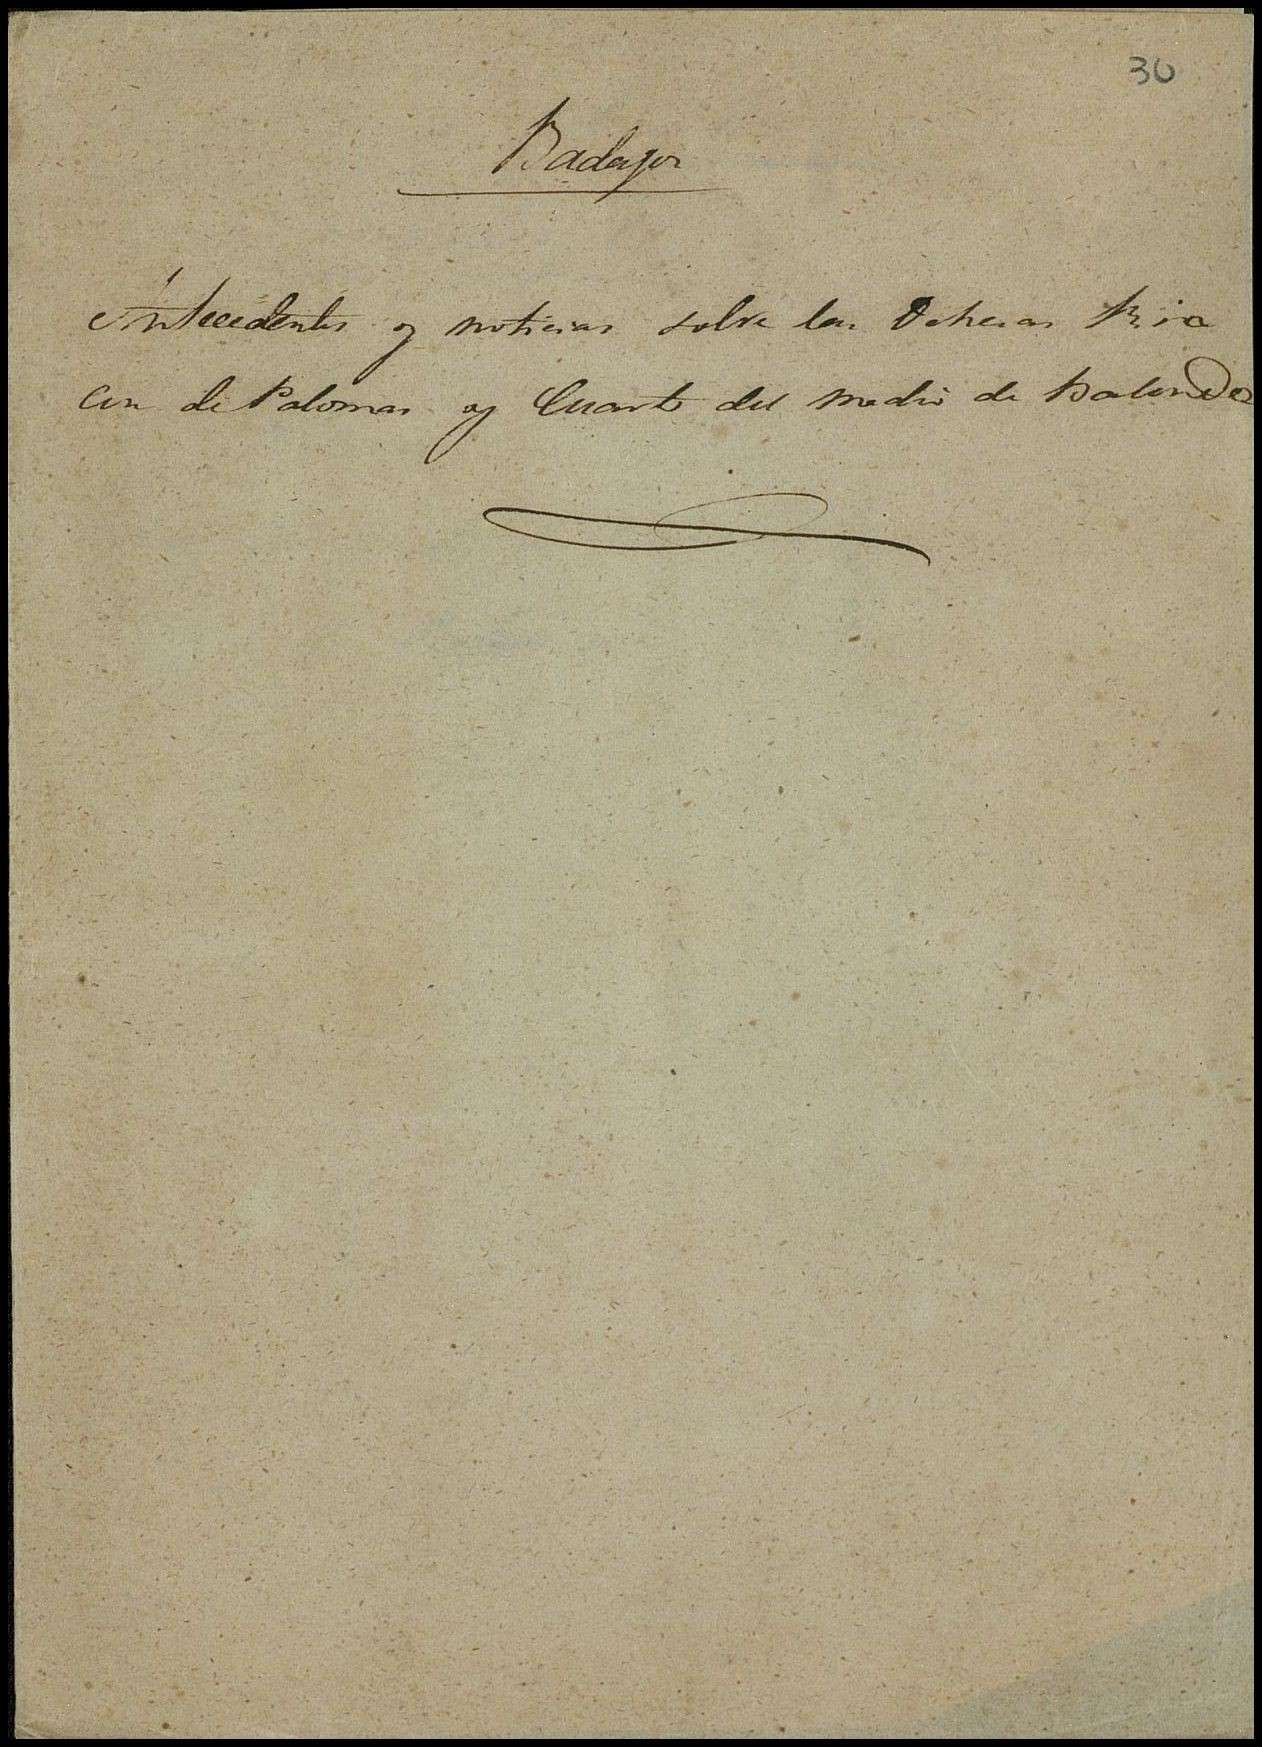 30
Badajoz
Antecedentes y noticias sobre las Dehesas
de Palomas y Cuarto del medio de